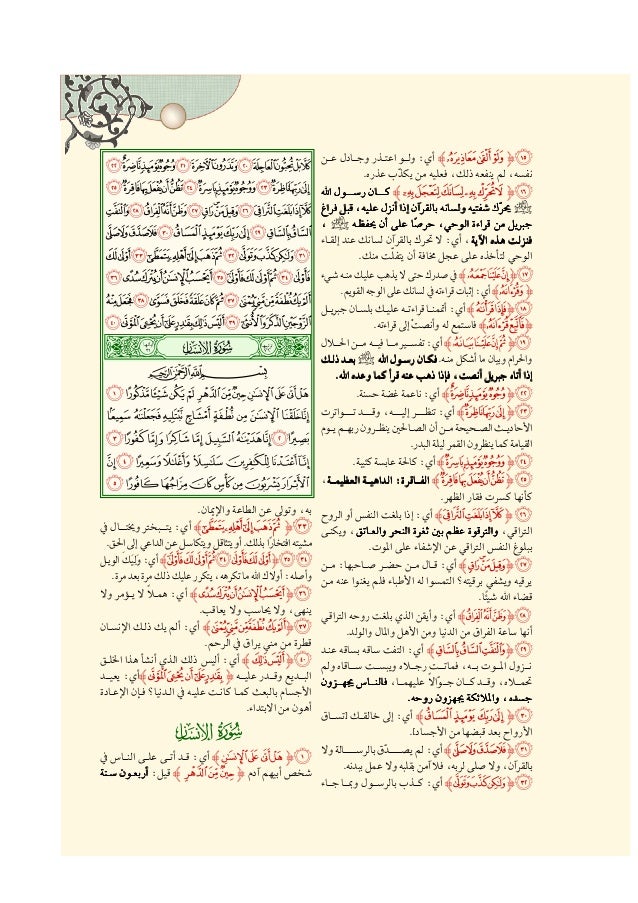 ﴿١٥﴾ ﴿ وَلَوْ أَلْقَىٰ مَعَاذِيرَهُۥ ﴾ أي: ولـو اعتـذر وجـادل عـن
نفسه، لم ينفعه ذلك، فعليه من يكذّب عذره.
﴿١٦﴾ ﴿ لَا تُحَرِّكْ بِهِۦ لِسَانَكَ لِتَعْجَلَ بِهِۦٓ ﴾ كـان رسـول الله
ﷺ يحرّك شفتيه ولسانه بالقرآن إذا أنزل عليه، قبل فراغ
جبريل من قراءة الوحي، حرصًا على أن يحفظـه ﷺ ،
فنزلت هذه الآية، أي: لا تحرك بالقرآن لسانك عند إلقـاء
الوحي لتأخذه على عجل مخافة أن يتفلّت منك.
﴿١٧﴾ ﴿ إِنَّ عَلَيْنَا جَمْعَهُۥ ﴾ في صدرك حتى لا يذهب عليك منه شيء
﴿ وَقُرْءَانَهُۥ ﴾ أي: إثبات قراءته في لسانك على الوجه القويم.
﴿١٨﴾ ﴿ فَإِذَا قَرَأْنَٰهُ ﴾ أي: أتممنـا قراءتـه عليـك بلسـان جبريـل
﴿ فَٱتَّبِعْ قُرْءَانَهُۥ ﴾ فاستمع له وأنصت إلى قراءته.
﴿١٩﴾ ﴿ ثُمَّ إِنَّ عَلَيْنَا بَيَانَهُۥ ﴾ أي: تفسـير مـا فيـه مـن الحـلال
والحرام وبيان ما أشكل منه. فكـان رسول الله ﷺ بعـد ذلـك
إذا أتاه جبريل أنصت، فإذا ذهب عنه قرأ كما وعده الله.
﴿٢٢﴾ ﴿ وُجُوهٌ يَوْمَئِذٍ نَّاضِرَةٌ ﴾ أي: ناعمة غضة حسنة.
﴿٢٣﴾ ﴿ إِلَىٰ رَبِّهَا نَاظِرَةٌ ﴾ أي: تنظـر إليـه، وقـد تـواترت
الأحاديـث الصـحيحة مـن أن الصـالحين ينظـرون ربهـم يـوم
القيامة كما ينظرون القمر ليلة البدر.
﴿٢٤﴾ ﴿ وَوُجُوهٌ يَوْمَئِذٍۭ بَاسِرَةٌ ﴾ أي: كالحة عابسة كئيبة.
﴿٢٥﴾ ﴿ تَظُنُّ أَن يُفْعَلَ بِهَا فَاقِرَةٌ ﴾ الفـاقـرة: الداهيـة العظيمـة،
كأنها كسرت فقار الظهر.
﴿٢٦﴾ ﴿ كَلَّآ إِذَا بَلَغَتِ ٱلتَّرَاقِىَ ﴾ أي: إذا بلغت النفس أو الروح
التراقي، والترقوة عظم بين ثغرة النحر والعـاتق، ويكنـى
ببلوغ النفس التراقي عن الإشفاء على الموت.
﴿٢٧﴾ ﴿ وَقِيلَ مَنْ رَاقٍ ﴾ أي: قـال مـن حضـر صـاحبها: مـن
يرقيه ويشفي برقيته؟ التمسوا له الأطباء فلم يغنوا عنه مـن
قضاء الله شيئًا.
﴿٢٨﴾ ﴿ وَظَنَّ أَنَّهُ ٱلْفِرَاقُ ﴾ أي: وأيقن الذي بلغت روحه التراقـي
أنها ساعة الفراق من الدنيا ومن الأهل والمال والولد.
﴿٢٩﴾ ﴿ وَٱلْتَفَّتِ ٱلسَّاقُ بِٱلسَّاقِ ﴾ أي: التفت ساقه بساقه عنـد
نـزول المـوت بـه، فماتـت رجـلاه ويبسـت سـاقاه ولم
تحمـلاه، وقـد كـان جـوّالًا عليهمـا، فالنـاس يجهـزون
جسده، والملائكة يجهزون روحه.
﴿٣٠﴾ ﴿ إِلَىٰ رَبِّكَ يَوْمَئِذٍ ٱلْمَسَاقُ ﴾ أي: إلى خالقـك [تسـاق
الأرواح بعد قبضها من الأجساد].
﴿٣١﴾ ﴿ فَلَا صَدَّقَ وَلَا صَلَّىٰ ﴾ أي: لم يصـدّق بالرسـالة ولا
بالقرآن، ولا صلى لربه، فلا آمن بقلبه ولا عمل ببدنه.
﴿٣٢﴾ ﴿ وَلَٰكِن كَذَّبَ وَتَوَلَّىٰ ﴾ أي: كـذب بالرسـول وبمـا جـاء
كَلَّا بَلْ تُحِبُّونَ ٱلْعَاجِلَةَ ٢٠ وَتَذَرُونَ ٱلْءَاخِرَةَ ٢١ وُجُوهٌ يَوْمَئِذٍ نَّاضِرَةٌ ٢٢
إِلَىٰ رَبِّهَا نَاظِرَةٌ ٢٣ وَوُجُوهٌ يَوْمَئِذٍۭ بَاسِرَةٌ ٢٤ تَظُنُّ أَن يُفْعَلَ بِهَا فَاقِرَةٌ ٢٥
كَلَّآ إِذَا بَلَغَتِ ٱلتَّرَاقِىَ ٢٦ وَقِيلَ مَنْ رَاقٍ ٢٧ وَظَنَّ أَنَّهُ ٱلْفِرَاقُ ٢٨ وَٱلْتَفَّتِ
ٱلسَّاقُ بِٱلسَّاقِ ٢٩ إِلَىٰ رَبِّكَ يَوْمَئِذٍ ٱلْمَسَاقُ ٣٠ فَلَا صَدَّقَ وَلَا صَلَّىٰ
٣١ وَلَٰكِن كَذَّبَ وَتَوَلَّىٰ ٣٢ ثُمَّ ذَهَبَ إِلَىٰٓ أَهْلِهِۦ يَتَمَطَّىٰٓ ٣٣ أَوْلَىٰ لَكَ
فَأَوْلَىٰ ٣٤ ثُمَّ أَوْلَىٰ لَكَ فَأَوْلَىٰٓ ٣٥ أَيَحْسَبُ ٱلْإِنسَٰنُ أَن يُتْرَكَ سُدًى ٣٦
أَلَمْ يَكُ نُطْفَةً مِّن مَّنِىٍّ يُمْنَىٰ ٣٧ ثُمَّ كَانَ عَلَقَةً فَخَلَقَ فَسَوَّىٰ ٣٨ فَجَعَلَ مِنْهُ
ٱلزَّوْجَيْنِ ٱلذَّكَرَ وَٱلْأُنثَىٰٓ ٣٩ أَلَيْسَ ذَٰلِكَ بِقَٰدِرٍ عَلَىٰٓ أَن يُحْـِۧىَ ٱلْمَوْتَىٰ ٤٠
سُورَةُ الإِنسَانِ
بِسْمِ ٱللَّهِ ٱلرَّحْمَٰنِ ٱلرَّحِيمِ
هَلْ أَتَىٰ عَلَى ٱلْإِنسَٰنِ حِينٌ مِّنَ ٱلدَّهْرِ لَمْ يَكُن شَيْـًٔا مَّذْكُورًا ١
إِنَّا خَلَقْنَا ٱلْإِنسَٰنَ مِن نُّطْفَةٍ أَمْشَاجٍ نَّبْتَلِيهِ فَجَعَلْنَٰهُ سَمِيعًۢا
بَصِيرًا ٢ إِنَّا هَدَيْنَٰهُ ٱلسَّبِيلَ إِمَّا شَاكِرًا وَإِمَّا كَفُورًا ٣
إِنَّآ أَعْتَدْنَا لِلْكَٰفِرِينَ سَلَٰسِلَا۟ وَأَغْلَٰلًا وَسَعِيرًا ٤ إِنَّ
ٱلْأَبْرَارَ يَشْرَبُونَ مِن كَأْسٍ كَانَ مِزَاجُهَا كَافُورًا ٥
به، وتولى عن الطاعة والإيمان.
﴿٣٣﴾ ﴿ ثُمَّ ذَهَبَ إِلَىٰٓ أَهْلِهِۦ يَتَمَطَّىٰٓ ﴾ أي: يتـبختر ويختـال في
مشيته افتخارًا بذلك. أو يتثاقل ويتكاسل عن الداعي إلى الحق.
﴿٣٤﴾ ﴿٣٥﴾ ﴿ أَوْلَىٰ لَكَ فَأَوْلَىٰ ثُمَّ أَوْلَىٰ لَكَ فَأَوْلَىٰٓ ﴾ أي: وَلِيَكَ الويـل
وأصله: أولاك الله ما تكرهه، يتكرر عليك ذلك مرة بعد مرة.
﴿٣٦﴾ ﴿ أَيَحْسَبُ ٱلْإِنسَٰنُ أَن يُتْرَكَ سُدًى ﴾ أي: همـلًا لا يـؤمر ولا
ينهى، ولا يحاسب ولا يعاقب.
﴿٣٧﴾ ﴿ أَلَمْ يَكُ نُطْفَةً مِّن مَّنِىٍّ يُمْنَىٰ ﴾ أي: ألم يك ذلـك الإنسـان
قطرة من مني يراق في الرحم.
﴿٤٠﴾ ﴿ أَلَيْسَ ذَٰلِكَ ﴾ أي: أليس ذلك الذي أنشأ هذا الخلـق
البـديع وقـدر عليـه ﴿ بِقَٰدِرٍ عَلَىٰٓ أَن يُحْـِۧىَ ٱلْمَوْتَىٰ ﴾ أي: يعيـد
الأجسام بالبعث كمـا كانـت عليـه في الـدنيا؟ فـإن الإعـادة
أهون من الابتداء.
سُورَةُ الإِنسَانِ
﴿١﴾ ﴿ هَلْ أَتَىٰ عَلَى ٱلْإِنسَٰنِ ﴾ أي: قـد أتـى علـى النـاس في
شخص أبيهم آدم ﴿ حِينٌ مِّنَ ٱلدَّهْرِ ﴾ قيل: أربعـون سـنة